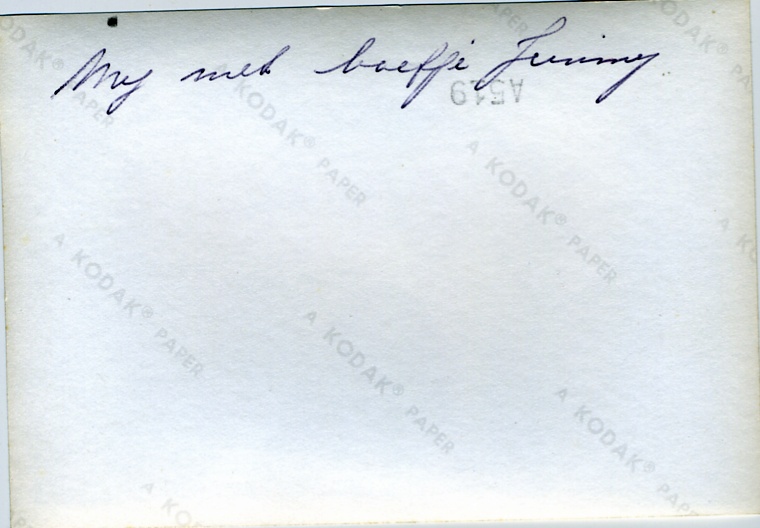 My met boeffie Jimmy
A519
A KODAK® PAPER
A KODAK® PAPER
A KODAK® PAPER
A KODAK® PAPER
A KODAK® PAPER